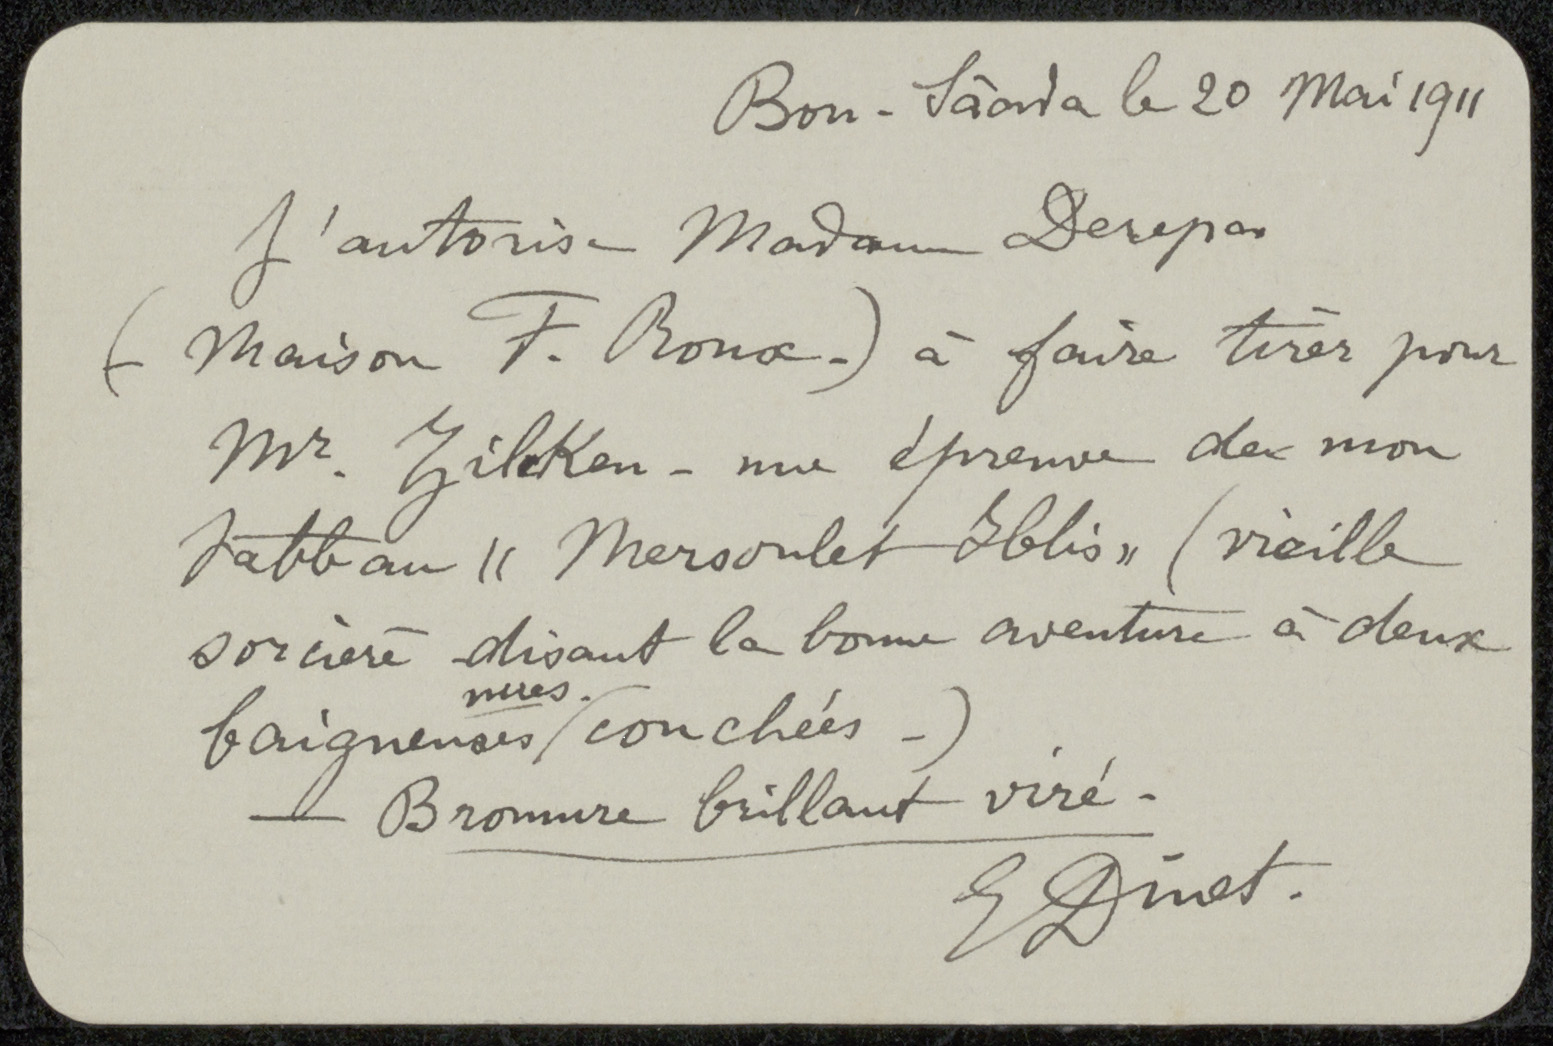 Bou-Sâada le 20 Mai 1911
J'autorise Madame Derepas
(Maison F. Roux-) à faire tirer pour
Mr. Zilcken - une épreuve de mon
tableau "Mersoulet Iblis" (vieille
sorcière disant la bonne aventure à deux
nues.
baigneuses/couchées -)
— Bromure brillant viré -
E Dinet.